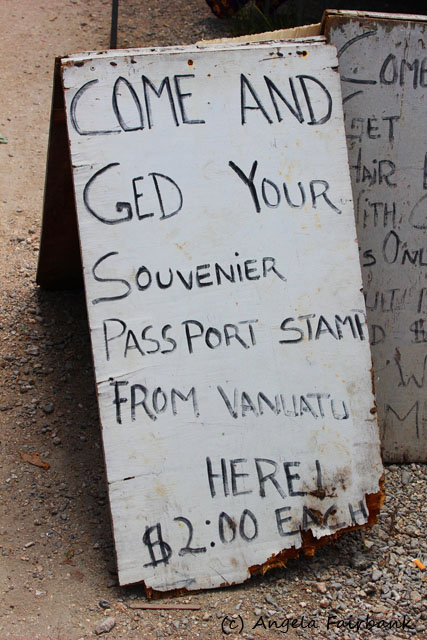 COME AND
GED YOUR
SOUVENIER
PASSPORT STAMP
FROM VANUATU
HERE!
$2:00 EACH
COME
GET
HAIR
ONL
$
(c) Angela Fairbank